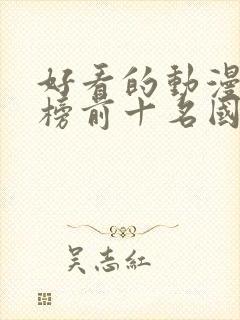 好看的動漫
榜前十名國
吴志紅